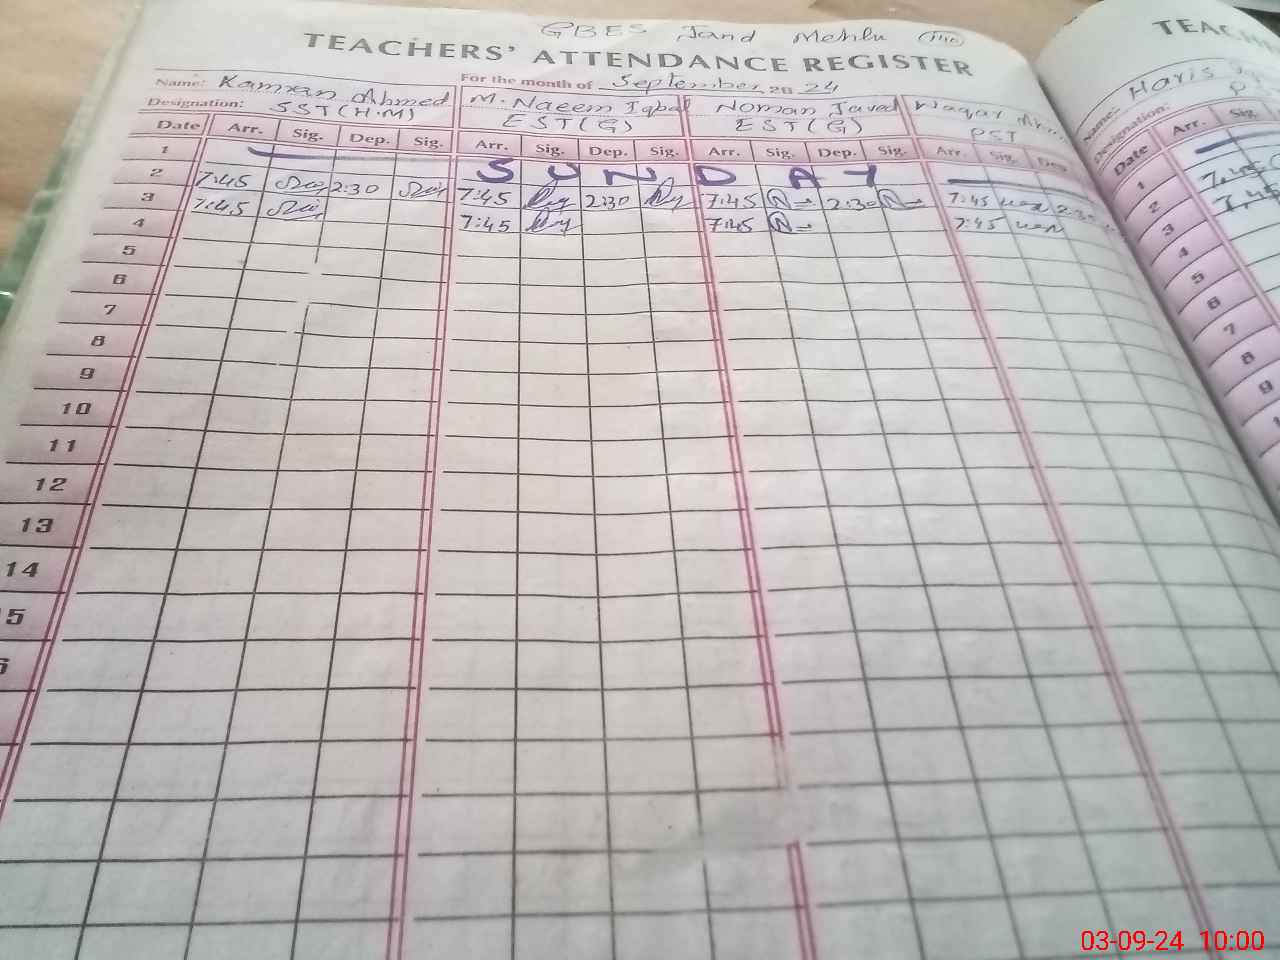 GBES Jand Mehlu
TEACHERS' ATTENDANCE REGISTER
For the month of September 20 24
Name: Kamran Ahmed M. Naeem Iqbal Noman Javed Waqar
Designation: SST (H.M) EST (G) EST (G) PST
Date Arr. Sig. Dep. Sig. Arr. Sig. Dep. Sig. Arr. Sig. Dep. Sig. Arr. Sig. Dep.
1 SUNDAY
2 7:45 2:30 7:45 2:30 7:45 2:30 7:45
3 7:45 7:45 7:45 7:45
4
5
6
7
8
9
10
11
12
13
14
5
6
TEAC
Name: Haris
Designation: P
Date Arr. Sig.
1
2 7:45
3 7:45
4
5
6
7
8
9
03-09-24 10:00